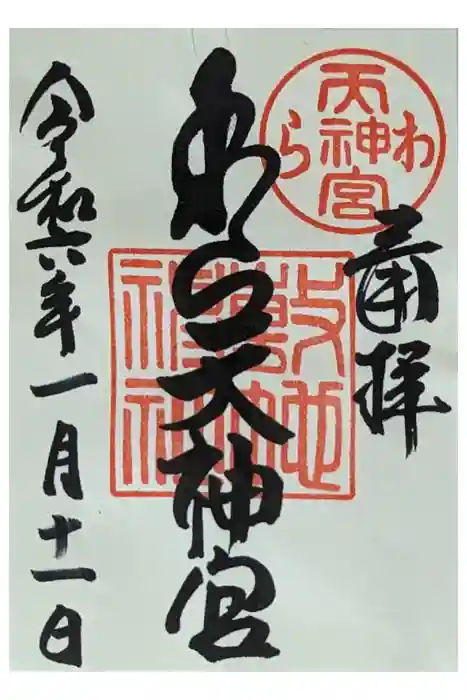 奉拝
わら天神宮
わら
天神宮
敷地
令和六年一月十一日